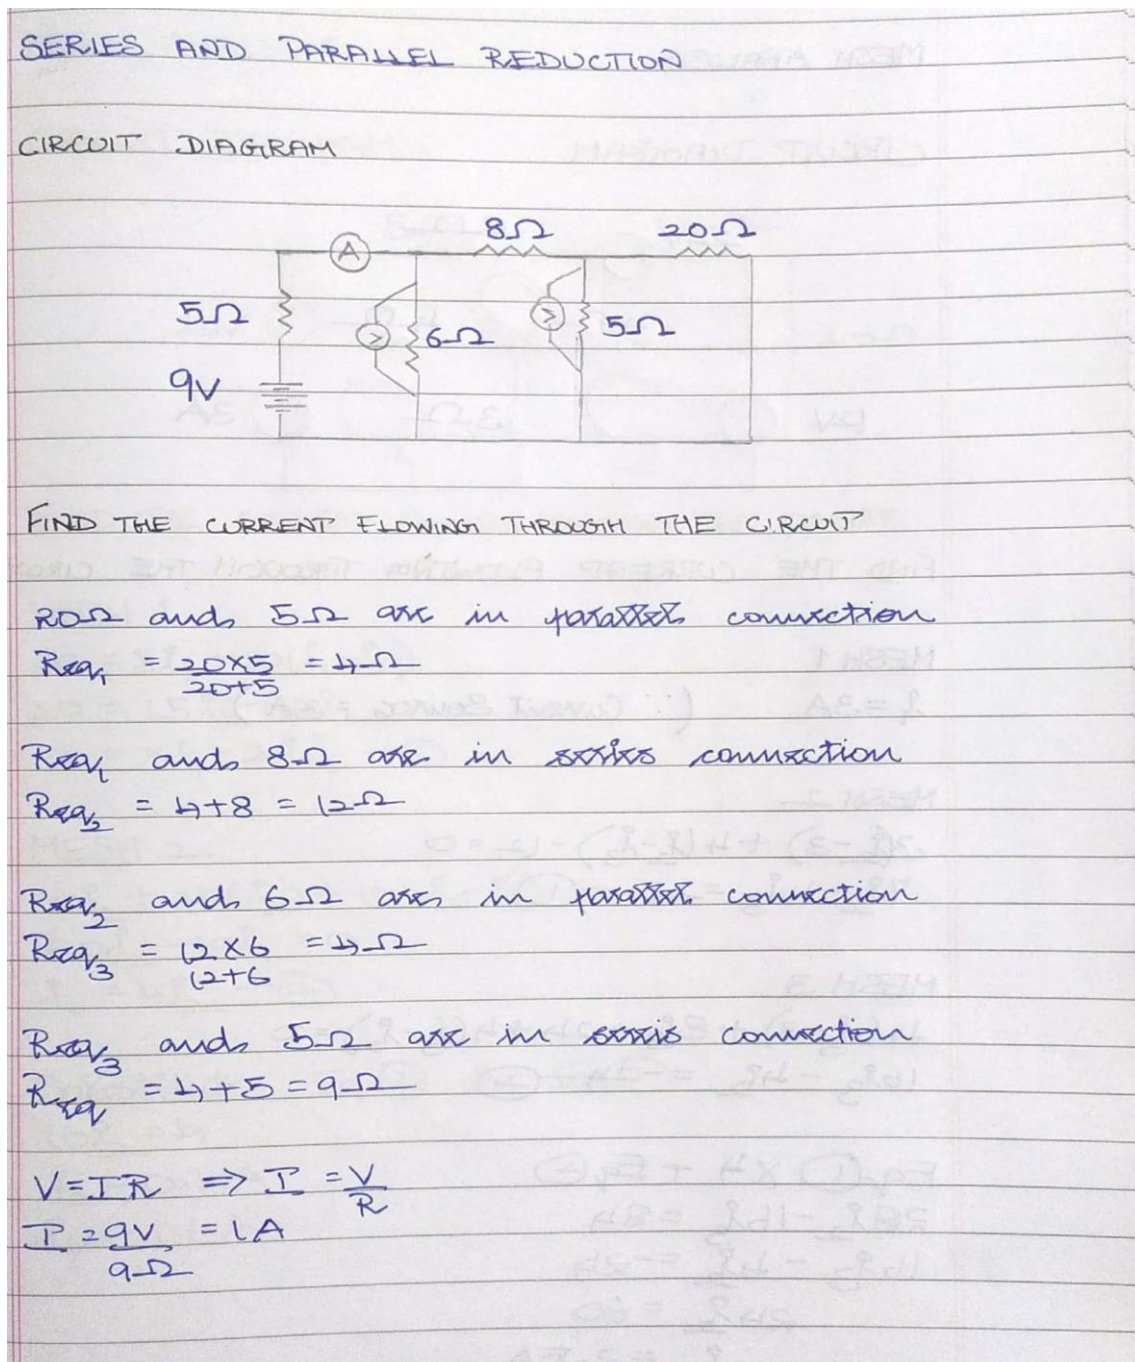 SERIES AND PARALLEL REDUCTION
CIRCUIT DIAGRAM
8Ω 20Ω
A
5Ω
V 6Ω V 5Ω
9V
FIND THE CURRENT FLOWING THROUGH THE CIRCUIT
20Ω and 5Ω are in parallel connection
Req₁ = 20×5 = 4Ω
20+5
Req₁ and 8Ω are in series connection
Req₂ = 4+8 = 12Ω
Req₂ and 6Ω are in parallel connection
Req₃ = 12×6 = 4Ω
12+6
Req₃ and 5Ω are in series connection
Req = 4+5 = 9Ω
V=IR ⇒ I = V
R
I = 9V = 1A
9Ω